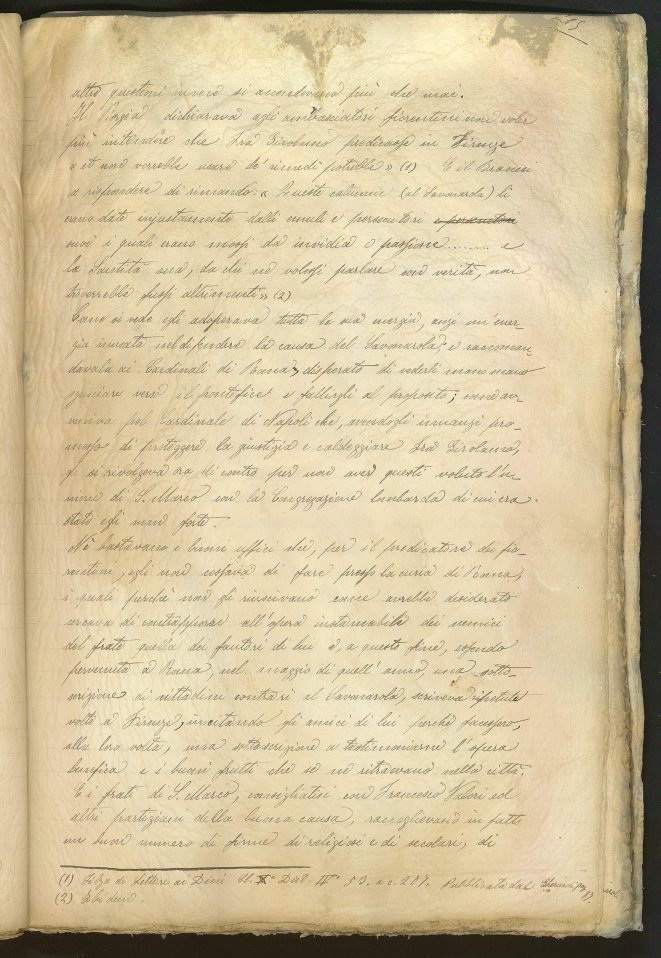 65
altre questioni invece si accendevano più che mai.
Il Papa dichiarava agli ambasciatori fiorentini non voler
più intendere che Frà Girolamo predicasse in Firenze
« et non vorrebbe usare de' rimedi potrebbe » (1) E il Bracci
a rispondere di rimando: « Queste calunnie (al Savonarola) li
erano date injustamente dalli emuli e persecutori e persecutori
suoi i quali erano mossi da invidia e passione ........ e
la Santità sua, da chi ne volessi parlare con verità, non
troverrebbe fussi altrimenti » (2)
Come si vede egli adoperava tutta la sua energia, anzi un'ener-
gia inusata nel difendere la causa del Savonarola e raccoman-
davala ai Cardinali di Roma, disperato di vederli mano mano
verso il pontefice e fallirgli al proposito; come av-
veniva pel Cardinale di Napoli che, avendogli innanzi pro-
messo di proteggere la giustizia e caldeggiare Frà Girolamo,
gli si rivolgeva ora di contro per non aver questi voluto l'u-
nione di S. Marco con la Congregazione lombarda di cui era
stato egli man forte.
Nè bastavano i buoni uffici che, per il predicatore dei fio-
rentini, egli non cessava di fare presso la curia di Roma,
i quali perchè non gli riuscivano come avrebbe desiderato
cercava di contrapporre all'opera instancabile dei nemici
del frate quella dei fautori di lui e, a questo fine, essendo
pervenuta a Roma, nel maggio di quell'anno, una sotto-
scrizione di cittadini contrari al Savonarola, scriveva ripetute
volte a Firenze, incitando gli amici di lui perchè facessero,
alla loro volta, una sottoscrizione a testimoniarne l'opera
benefica e i buoni frutti che se ne ritraevano nella città.
E i frati di S. Marco, consigliatisi con Francesco Valori ed
altri partigiani della buona causa, raccoglievano in fatto
un buon numero di firme di religiosi e di secolari, di
(1) Filza di Lettere ai Dieci Cl. X Dist. IV 53. a c. 207. Pubblicata dal Gherardi
(2) Ibidem.